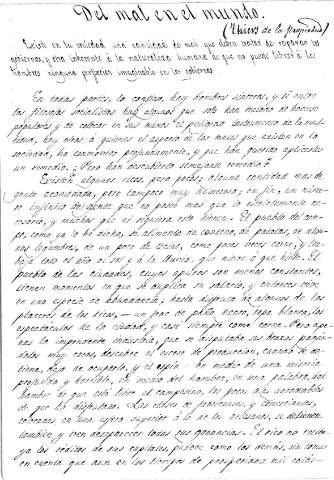 Del mal en el mundo.
(Thiers de la Propiedad)
Existe en la sociedad una cantidad de mal que deben tratar de reparar los
gobiernos, y otra inherente á la naturaleza humana de que no puede librar á los
hombres ninguna perfeccion imaginable en los gobiernos.
En todas partes, lo confieso, hay hombres sinceros, y si entre
los filósofos socialistas hay algunos que solo han tratado de hacerse
populares y de colocar en sus manos el peligroso instrumento de la mul-
titud, hay otros á quienes el aspecto de los males que existen en la
sociedad, ha conmovido profundamente, y que han querido aplicarles
un remedio. ¿Pero han descubierto semejante remedio?
Existen algunos ricos, pero pocos; alguna cantidad mas de
gente acomodada, pero tampoco muy numerosa; en fin, un núme-
ro infinito de gentes que no posee mas que lo estrictamente ne-
cesario, y muchas que ni siquiera esto tienen. El pueblo del cam-
po, como ya lo he dicho, se alimenta de centeno, de patatas, de algunas
legumbres, de un poco de tocino, come pocas veces carne, y tra-
baja todo el año al sol y á la lluvia, que nieve ó que hiele. El
pueblo de las ciudades, cuyos apuros son menos constantes,
tienen momentos en que se duplica su salario, y entonces vive
en una especie de abundancia; hasta disfruta de algunos de los
placeres de los ricos, — un frac de paño negro, ropa blanca, los
espectáculos de la ciudad, y casi siempre come carne. Pero ape-
nas la imprudente industria, que se disputaba sus brazos pagán-
dolos muy caros, descubre el esceso de produccion, cuando se de-
tiene, deja de ocuparlo, y el espía en medio de una miseria
profunda y horrible, en medio del hambre, en una palabra, del
hambre, de que está libre el campesino, los pocos dias agradables
de que ha disfrutado. Las clases de fabricantes, y comerciantes,
colocadas en una esfera superior á la de los artesanos, se detienen
tambien y ven desaparecer todas sus ganancias. El rico no recibe
ya los réditos de sus capitales, padece como los demás, sin tomar
en cuenta que aun en los tiempos de prosperidad mil cala-